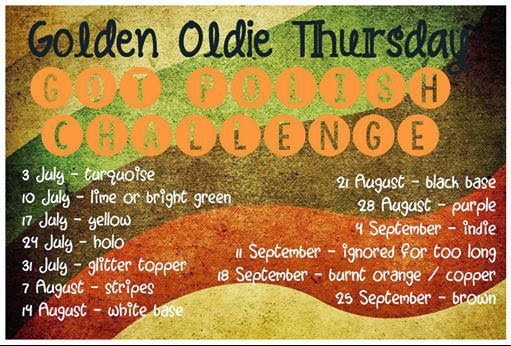 Golden Oldie Thursday
GOT POLISH
CHALLENGE
3 July - turquoise
10 July - lime or bright green
17 July - yellow
24 July - holo
31 July - glitter topper
7 August - stripes
14 August - white base
21 August - black base
28 August - purple
4 September - indie
11 September - ignored for too long
18 September - burnt orange / copper
25 September - brown